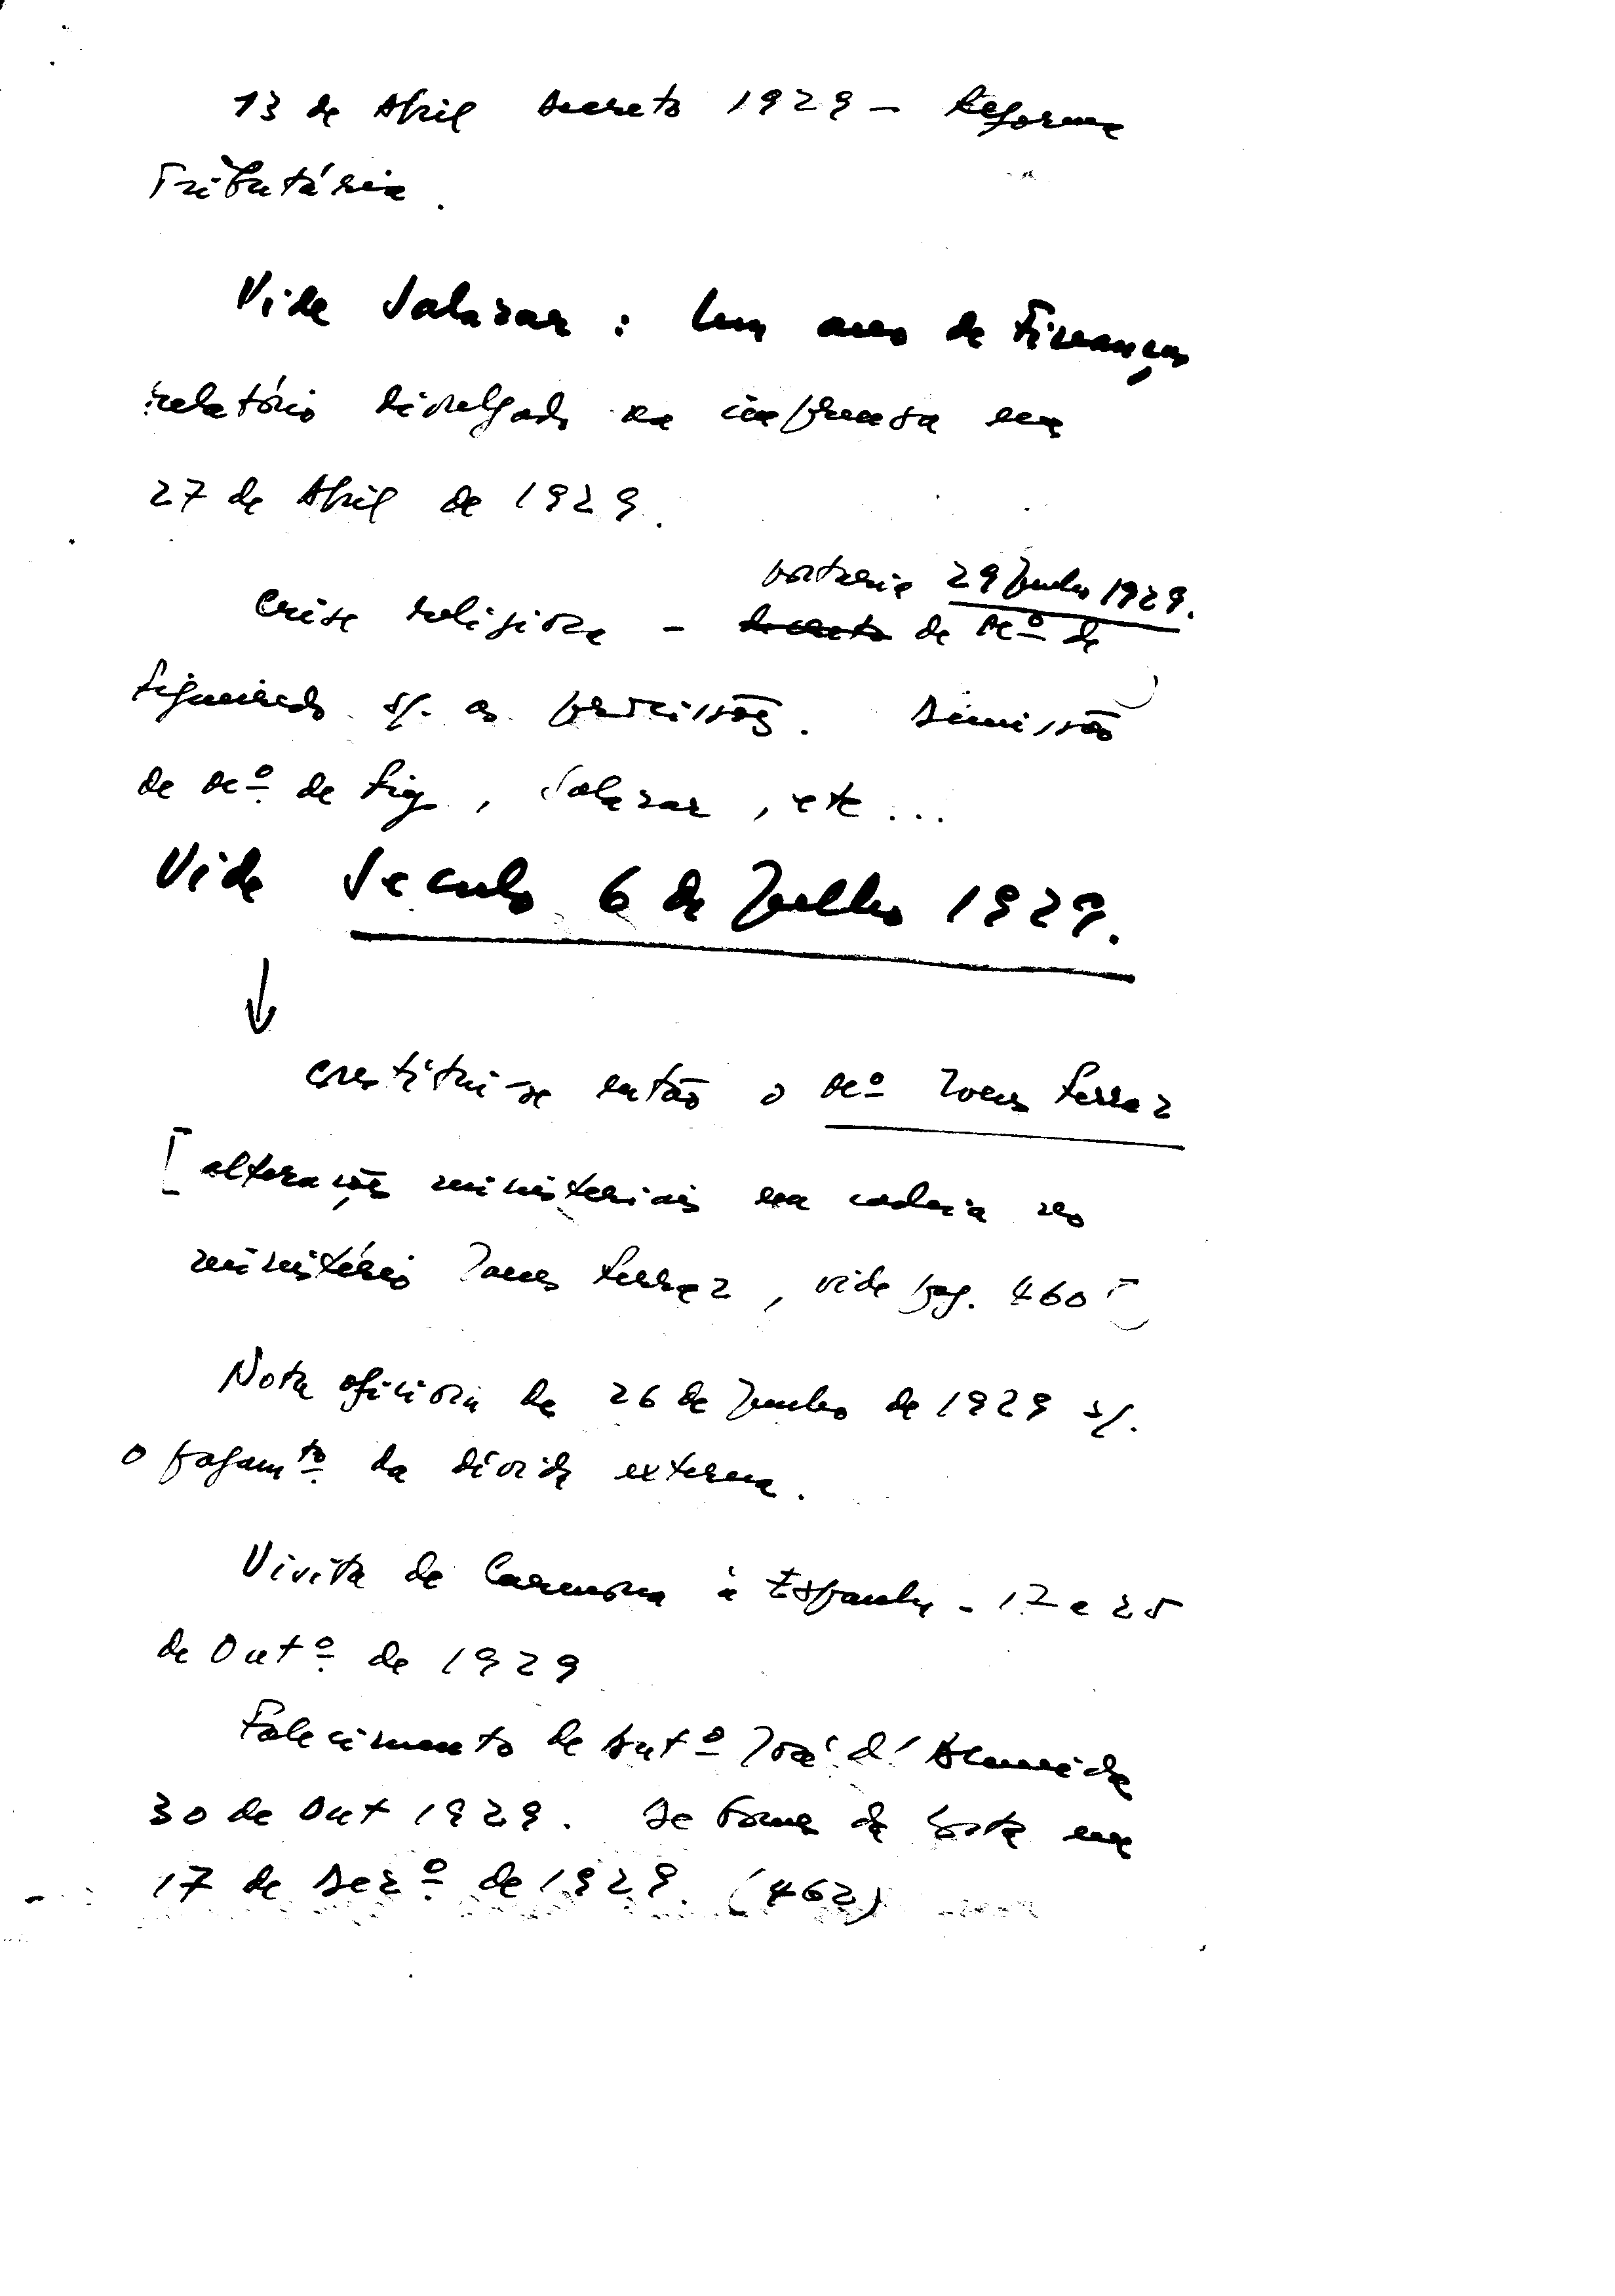 13 de Abril Decreto 1929 - Reforma
Tributária.
Vide Salazar: Um ano de Finanças
relatório divulgado na imprensa em
27 de Abril de 1929.
portaria 29 Junho 1929.
Crise religiosa - decreto de Mº de
Figueiredo s/. as procissões. Demissão
de Mº de Fig., Salazar, etc...
Vide Seculo 6 de Julho 1929.
↓
constitui-se então o Mº Ivens Ferraz
[alterações ministeriais em cadeia no
ministério Ivens Ferraz, vide pag. 460]
Nota oficiosa de 26 de Junho de 1929 s/.
o pagamto da dívida externa.
Visita de Carmona à Espanha - 17 a 25
de Outº de 1929
Falecimento de Antº José d'Almeida
30 de Out 1929. De Gomes da Costa em
17 de Dezº de 1929. (462)